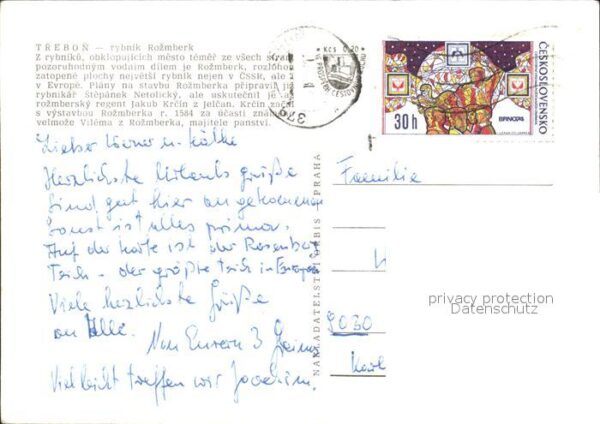 TŘEBOŇ — rybník Rožmberk
Z rybníků, obklopujících město téměř ze všech stran
pozoruhodným vodním dílem je Rožmberk, rozlohou
zatopené plochy největší rybník nejen v ČSSR, ale
v Evropě. Plány na stavbu Rožmberka připravil již
rybníkář Štěpánek Netolický, ale uskutečnil je až
rožmberský regent Jakub Krčín z Jelčan. Krčín začal
s výstavbou Rožmberka r. 1584 za účasti
velmože Viléma z Rožmberka, majitele panství.
Kčs 0,20
379
ČESKOSLOVENSKO
30 h
BRNO74
Lieber Werner u. Käthe
Herzlichste Urlaubs grüße
Sind gut hier angekommen
Sonst ist alles prima.
Auf der Karte ist der Rosenberg
Teich - der größte Teich in Europa
Viele herzlichste Grüße
an Alle.
Von Euren 3
Vielleicht treffen wir Joachim.
NAKLADATELSTVÍ ORBIS PRAHA
Familie
9030
privacy protection
Datenschutz